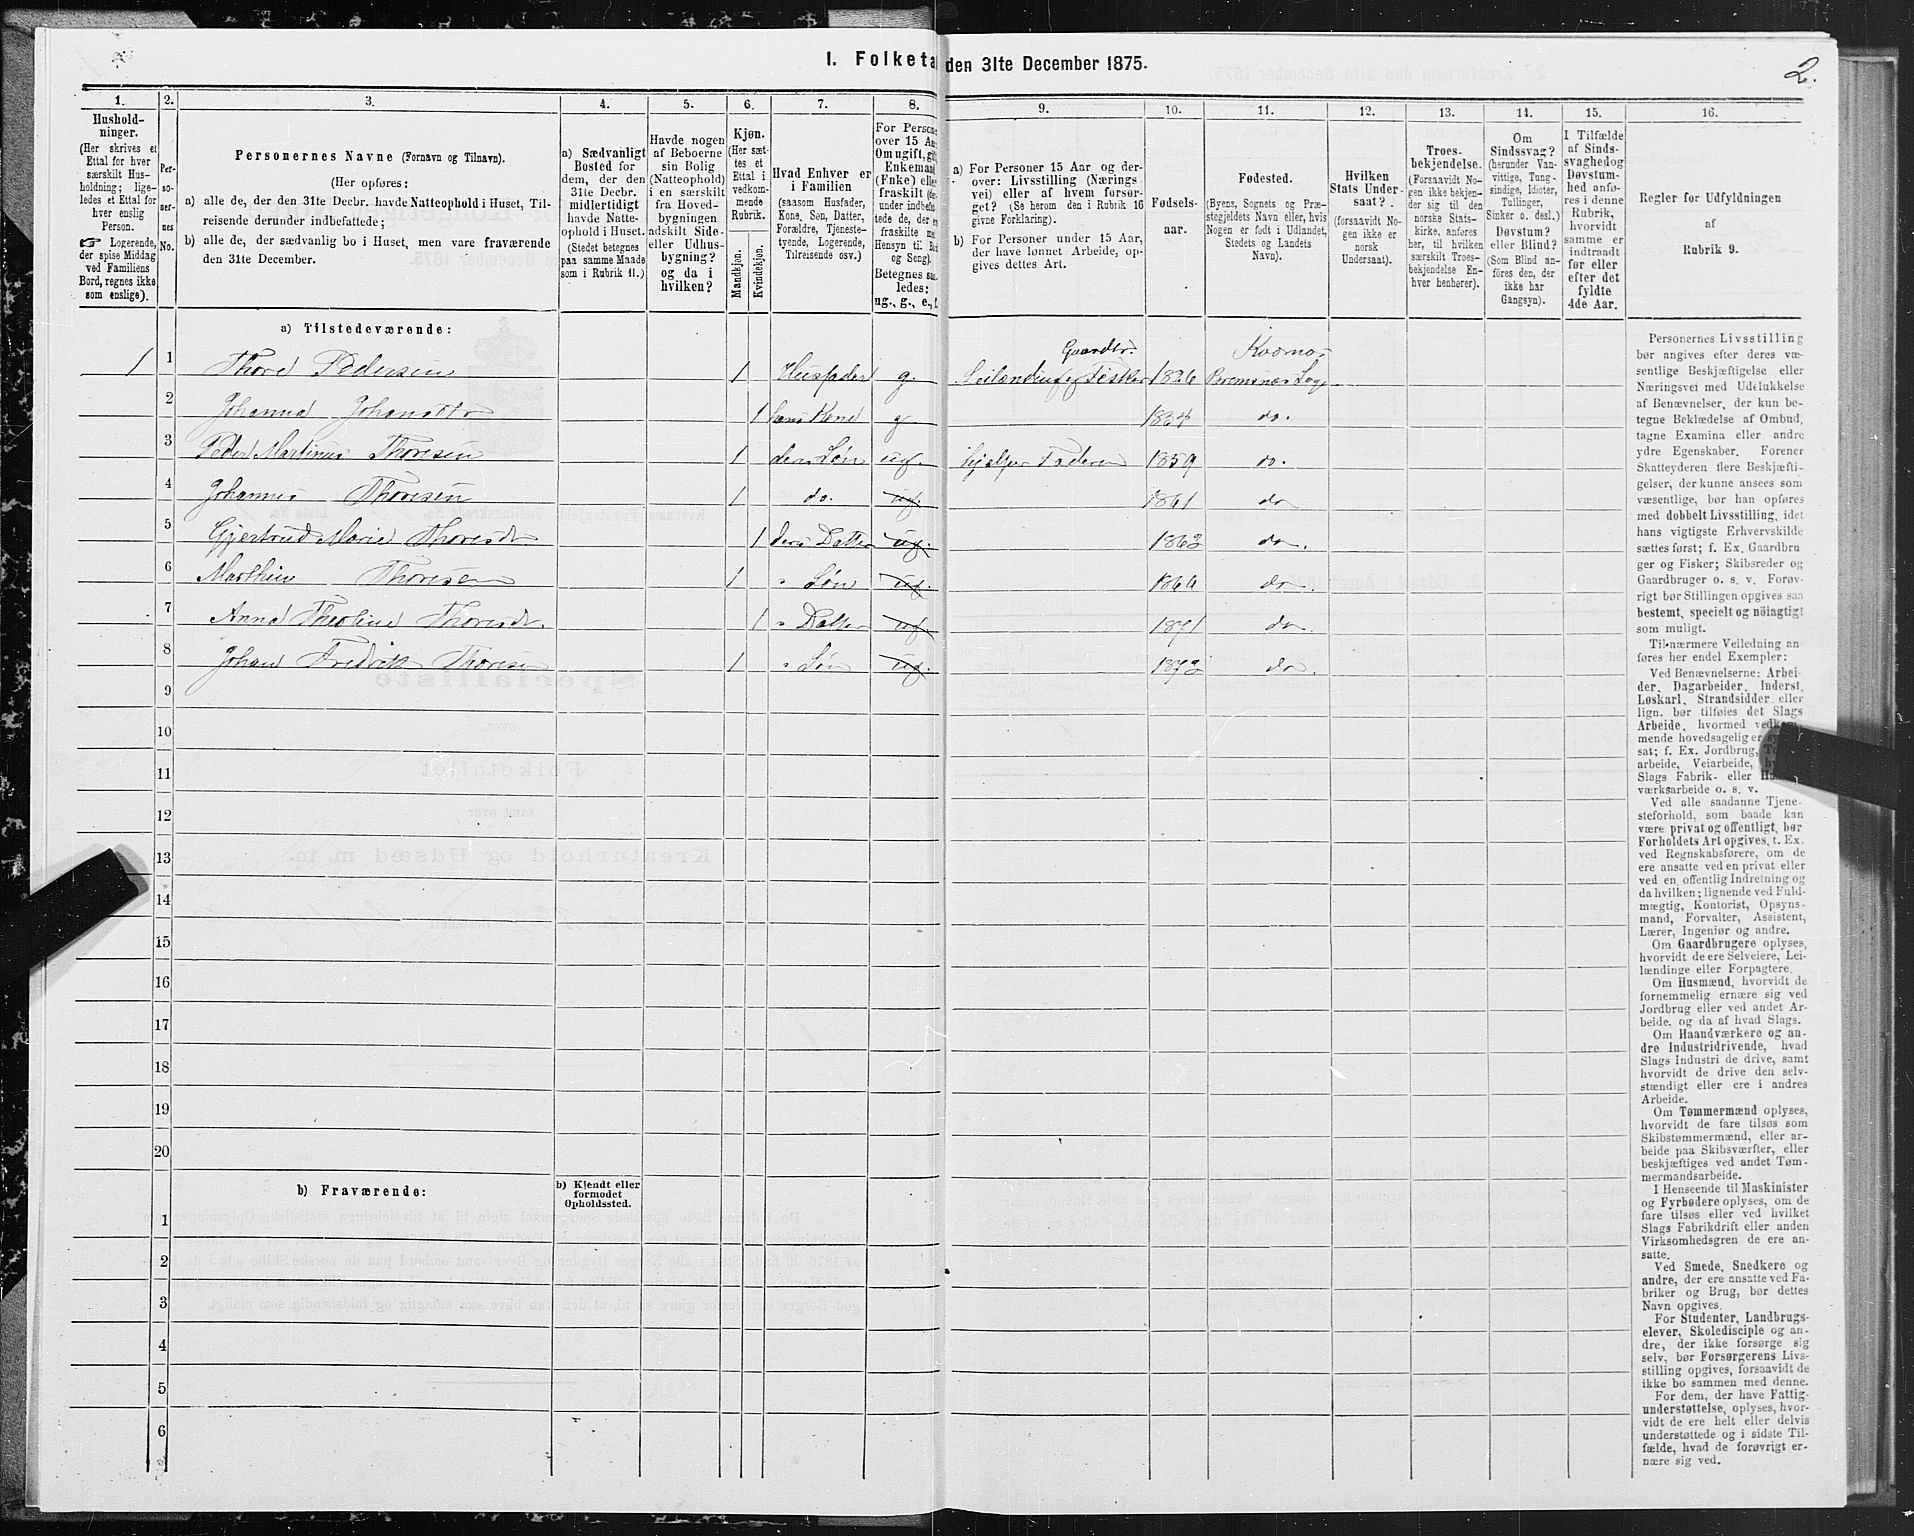 I. Folketa den 31te December 1875.
2.
1.
2.
3.
4.
5.
6.
7.
8.
9.
10.
11.
12.
13.
14.
15.
16.
Hushold-
ninger.
(Her skrives et
Ettal for hver
særskilt Hus-
holdning; lige-
ledes et Ettal for
hver enslig
Person.
☞ Logerende,
der spise Middag
ved Familiens
Bord, regnes ikke
som enslige).
Per-
so-
ner-
nes
No.
Personernes Navne (Fornavn og Tilnavn).
(Her opføres:
a) alle de, der den 31te Decbr. havde Natteophold i Huset, Til-
reisende derunder indbefattede;
b) alle de, der sædvanlig bo i Huset, men vare fraværende
den 31te December.
a) Sædvanligt
Bosted for
dem, der den
31te Decbr.
midlertidigt
havde Natte-
ophold i Huset.
(Stedet betegnes
paa samme Maade
som i Rubrik 11.)
Havde nogen
af Beboerne
sin Bolig
(Natteophold)
i en særskilt
fra Hoved-
bygningen
adskilt Side-
eller Udhus-
bygning?
og da i
hvilken?
Kjøn.
(Her sæt-
tes et
Ettal i
vedkom-
mende
Rubrik.
Mandkjøn.
Kvindekjøn.
Hvad Enhver er
i Familien
(saasom Husfader,
Kone, Søn, Datter,
Forældre, Tjeneste-
tyende, Logerende,
Tilreisende osv.)
For Persone
over 15 Aa
Omugift, gi
Enkemand
(Enke) elle
fraskilt (de
under indbefat
tede de, der er
fraskilte m
Hensyn til Bo
og Seng).
Betegnes saa
ledes:
ug., g., e., f.
a) For Personer 15 Aar og der-
over: Livsstilling (Nærings-
vei) eller af hvem forsør-
get? (Se herom den i Rubrik 16
givne Forklaring).
b) For Personer under 15 Aar,
der have lønnet Arbeide, op-
gives dettes Art.
Fødsels-
aar.
Fødested.
(Byens, Sognets og Præ-
stegjeldets Navn eller, hvis
Nogen er født i Udlandet,
Stedets og Landets
Navn).
Hvilken
Stats Under-
saat?
(forsaavidt No-
gen ikke er
norsk
Undersaat).
Troes-
bekjendelse.
(Forsaavidt No-
gen ikke bekjen-
der sig til den
norske Stats-
kirke, anføres
her, til hvilken
særskilt Troes-
bekjendelse En-
hver henhører).
Om
Sindssvag?
(herunder Van-
vittige, Tung-
sindige, Idioter,
Tullinger,
Sinker o. desl.)
Døvstum?
eller Blind?
(Som Blind an-
føres den, der
ikke har
Gangsyn).
I Tilfælde
af Sinds-
svaghedog
Døvstum-
hed anfø-
res i denne
Rubrik,
hvorvidt
samme er
indtraadt
før eller
efter det
fyldte
4de Aar.
Regler for Udfyldningen
af
Rubrik 9.
a) Tilstedeværende:
Gaardbr. Kværnæs
1 1 Thore Pedersen 1 Husfader g. Leilænding Fisker 1826 Bremsnæs Sogn
2 Johanna Johansdtr 1 hans Kone g 1834 do.
3 Peder Martinus Thoresen 1 deres Søn ug. hjælper Faderen 1859 do.
4 Johannes Thoresen 1 do. ug. 1861 do
5 Gjertrud Marie Thoresdr 1 deres Datter ug. 1862 do.
6 Thoresen 1 " Søn ug. do.
7 Anna Thoresdr. 1 " Datter ug. 1871 do.
8 Johan Fredrik Thoresen 1 " Søn ug. 1872 do.
9
10
11
12
13
14
15
16
17
18
19
20
b) Fraværende:
b) Kjendt eller
formodet
Opholdssted.
1
2
3
4
5
6
Personernes Livsstilling
bør angives efter deres væ-
sentlige Beskjæftigelse eller
Næringsvei med Udelukkelse
af Benævnelser, der kun be-
tegne Beklædelse af Ombud,
tagne Examina eller andre
ydre Egenskaber. Forener
Skatteyderen flere Beskjæfti-
gelser, der kunne ansees som
væsentlige, bør han opføres
med dobbelt Livsstilling, idet
hans vigtigste Erhvervskilde
sættes først; f. Ex. Gaardbru
ger og Fisker; Skibsreder og
Gaardbruger o. s. v. Forøv-
rigt bør Stillingen opgives saa
bestemt, specielt og nöiagtigt
som muligt.
Tilnærmere Veiledning an
føres her endel Exempler:
Ved Benævnelserne: Arbei-
der, Dagarbeider, Inderst,
Løskarl, Strandsidder eller
lign. bør tilføies det Slags
Arbeide, hvormed vedkom-
mende hovedsagelig er
sat; f. Ex. Jordbrug,
arbeide, Veiarbeide,
Slags Fabrik- eller
værksarbeide o. s. v.
Ved alle saadanne Tjene-
steforhold, som baade kan
være privat og offentligt, bør
Forholdets Art opgives, f. Ex.
ved Regnskabsførere, om de
ere ansatte ved en privat eller
ved en offentlig Indretning og
da hvilken; lignende ved Fuld-
mægtig, Kontorist, Opsyns-
mand, Forvalter, Assistent,
Lærer, Ingeniør og andre.
Om Gaardbrugere oplyses,
hvorvidt de ere Selveiere, Lei-
lændinge eller Forpagtere.
Om Husmænd, hvorvidt de
fornemmelig ernære sig ved
Jordbrug eller ved andet Ar-
beide, og da af hvad Slags.
Om Haandværkere og an-
dre Industridrivende, hvad
Slags Industri de drive, samt
hvorvidt de drive den selv-
stændigt eller ere i andres
Arbeide.
Om Tømmermænd oplyses,
hvorvidt de fare tilsøs som
Skibstømmermænd, eller ar-
beide paa Skibsværfter, eller
beskjæftiges ved andet Tøm-
mermandsarbeide.
I Henseende til Maskinister
og Fyrbødere oplyses, om de
fare tilsøs eller ved hvilket
Slags Fabrikdrift eller anden
Virksomhedsgren de ere an-
satte.
Ved Smede, Snedkere og
andre, der ere ansatte ved Fa-
briker og Brug, bør dettes
Navn opgives.
For Studenter, Landbrugs-
elever, Skoledisciple og an-
dre, der ikke forsørge sig
selv, bør Forsørgerens Livs-
stilling opgives, forsaavidt de
ikke bo sammen med denne.
For dem, der have Fattig-
understøttelse, oplyses, hvor-
vidt de ere helt eller delvis
understøttede og i sidste Til-
fælde, hvad de forøvrigt er-
nære sig ved.